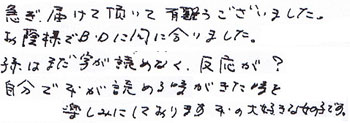 急ぎ届けて頂いて有難うございました。
お陰様でB・Dに間に合いました。
孫はまだ字が読めなく、反応が？
自分で字が読める時がきた時を
楽しみにしております 本の大好きな女の子です。